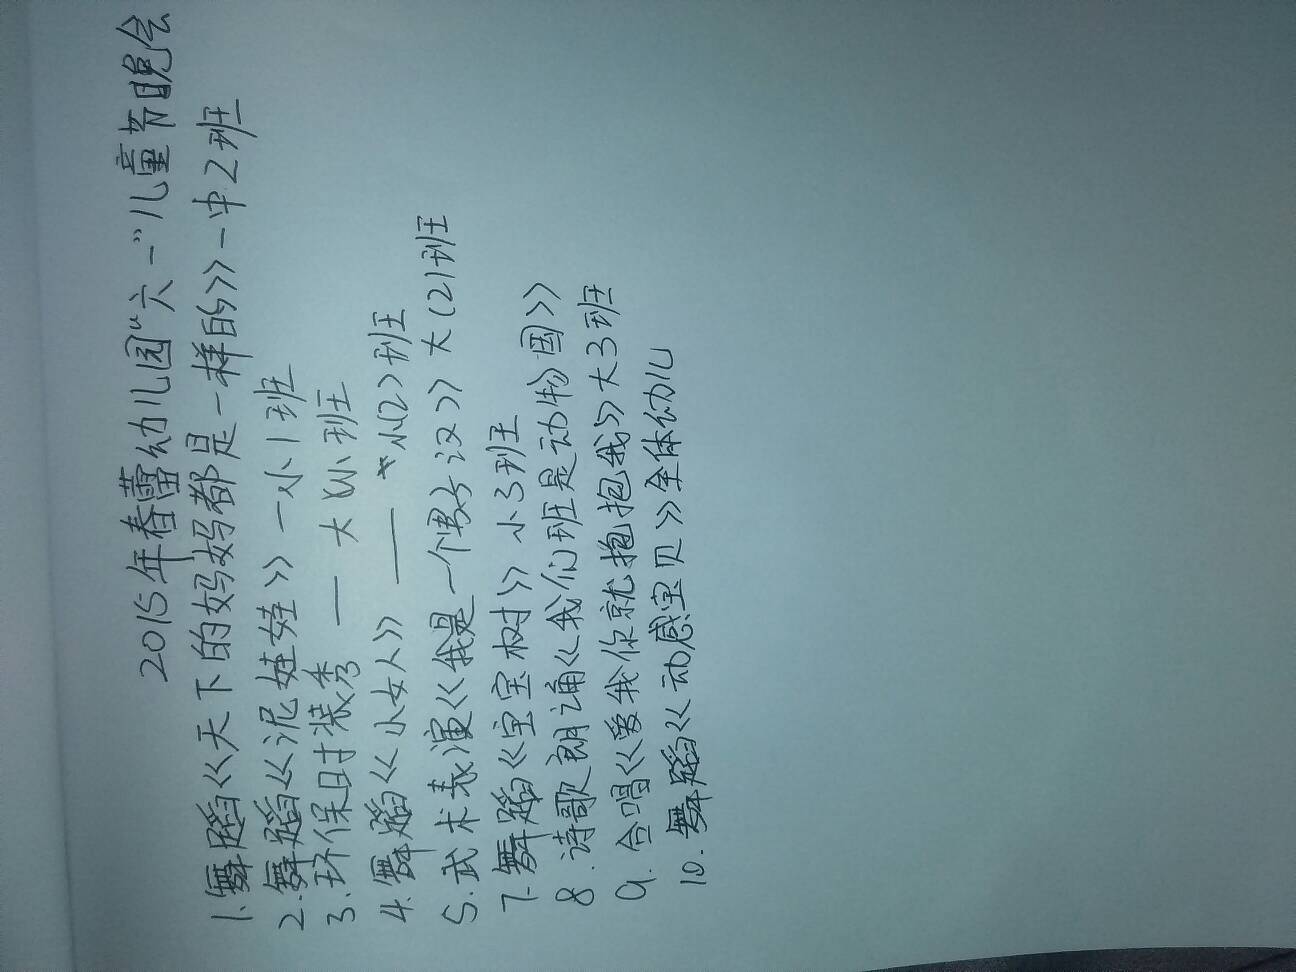 2015年春蕾幼儿园"六一"儿童节晚会
1.舞蹈《天下的妈妈都是一样的》—中2班
2.舞蹈《泥娃娃》—小1班
3.环保时装秀 —— 大(1)班
4.舞蹈《小女人》 —— 小(2)班
5.武术表演《我是一个男子汉》大(2)班
7.舞蹈《宝宝树》小3班
8.诗歌朗诵《我们班是动物园》
9.合唱《爱我你就抱抱我》大3班
10.舞蹈《动感宝贝》全体幼儿